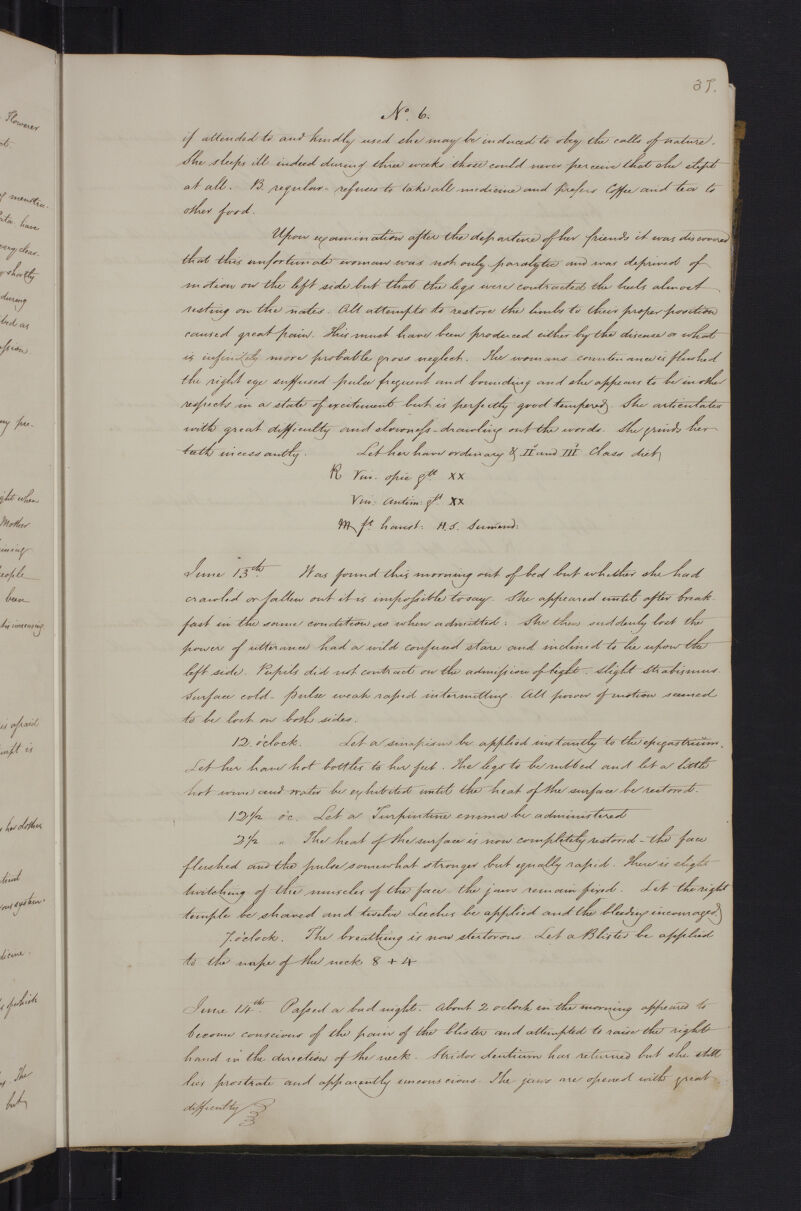 37.
No. 6.
if attended to and kindly used she may be induced to obey the calls of nature.
She sleeps ill indeed during three weeks those could never perceive that she slept
at all. B. regular - refuses to take all medicine and prefers Coffee and tea to
other food.
Upon examination after the departure of her friends it was discovered
that this unfortunate woman was not only paralytic and was deprived of
motion on the left side but that the legs were contracted the heels almost
resting on the nates. All attempts to restore the limbs to their proper position
caused great pain. This must have been produced either by the disease or what
is infinitely more probable gross neglect. The womans countenance is flushed
the right eye suffused pulse frequent and bounding and she appears to be in other
respects in a state of excitement but is perfectly good tempered. She articulates
with great difficulty and slowness - drawling out the words. She grinds her
teeth incessantly. Let her have ordinary & II and III Class diet
R Vin. opii gtt XX
Vin: Antim: gtt XX
M ft. haust: H.S. Sumend:
June 13th. Was found this morning out of bed but whether she had
crawled or fallen out it is impossible to say. She appeared until after break
fast in the same condition as when admitted: She then suddenly lost the
power of utterance had a wild confused stare and inclined to lie upon the
left side. Pupils did not contract on the admission of light - slight strabismus.
Surface cold - pulse weak rapid intermitting. All power of motion seemed
to be lost on both sides.
12 o'clock. Let a sinapism be applied instantly to the epigastrium.
Let her have hot bottles to her feet. The legs to be rubbed and let a little
hot wine and water be exhibited until the heat of the surface be restored.
12 1/2 o'c. Let a Turpentine enema be administered
2 1/2 " The heat of the surface is now completely restored - the face
flushed and the pulse somewhat stronger but equally rapid. There is slight
twitching of the muscles of the face the jaws remain fixed. Let the right
temple be shaved and twelve Leeches be applied and the bleeding encouraged
7 o'clock. The breathing is now stertorous. Let a Blister be applied
to the nape of the neck 8 + 4
June 14th. Passed a bad night. About 2 oclock in the morning appeared to
become conscious of the pain of the blister and attempted to raise the right
hand in the direction of the neck. Stridor dentium has returned but she still
lies prostrate and apparently unconscious. The jaws are opened with great
difficulty